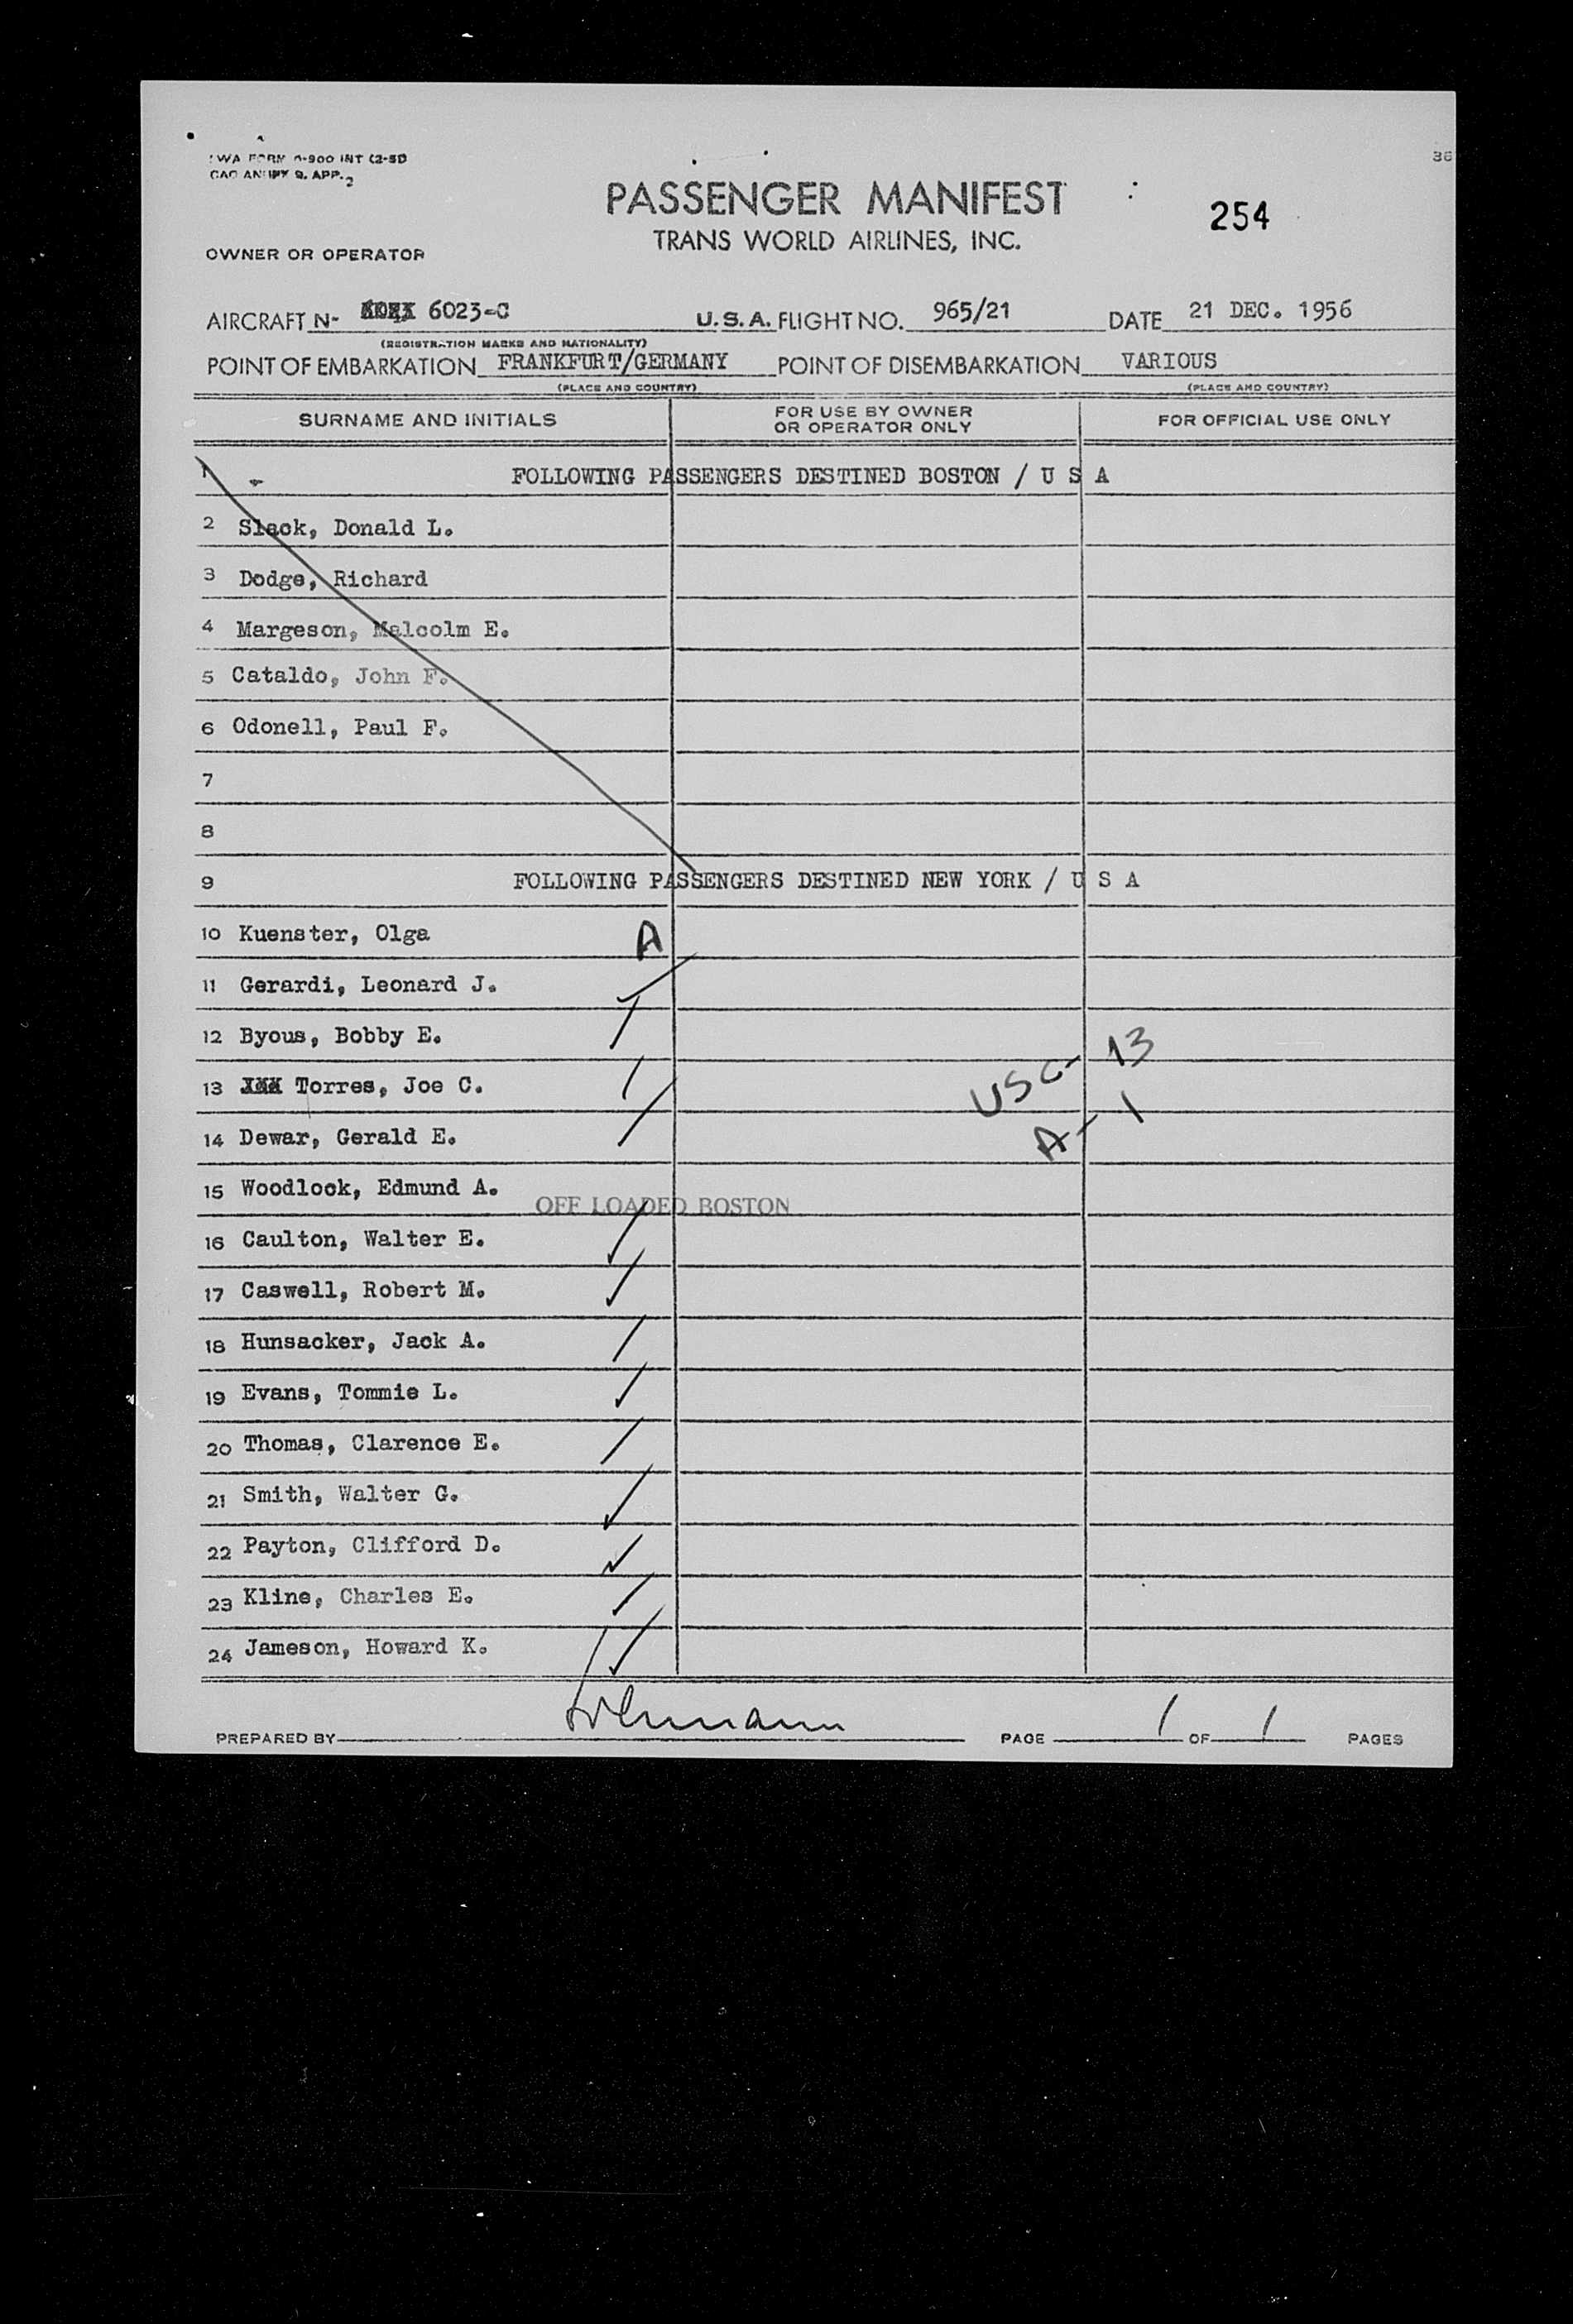 TWA FORM O-900 INT (2-51)
ICAO ANNEX 9. APP. 2
36
PASSENGER MANIFEST
254
TRANS WORLD AIRLINES, INC.
OWNER OR OPERATOR
AIRCRAFT N- 6023-C U.S.A. FLIGHT NO. 965/21 DATE 21 DEC. 1956
(REGISTRATION MARKS AND NATIONALITY)
POINT OF EMBARKATION FRANKFURT/GERMANY POINT OF DISEMBARKATION VARIOUS
(PLACE AND COUNTRY) (PLACE AND COUNTRY)
SURNAME AND INITIALS FOR USE BY OWNER OR OPERATOR ONLY FOR OFFICIAL USE ONLY
1 FOLLOWING PASSENGERS DESTINED BOSTON / U S A
2 Slack, Donald L.
3 Dodge, Richard
4 Margeson, Malcolm E.
5 Cataldo, John F.
6 Odonell, Paul F.
7
8
9 FOLLOWING PASSENGERS DESTINED NEW YORK / U S A
10 Kuenster, Olga A
11 Gerardi, Leonard J.
12 Byous, Bobby E.
USC- 13
13 Torres, Joe C.
A- 1
14 Dewar, Gerald E.
15 Woodlock, Edmund A.
OFF LOADED BOSTON
16 Caulton, Walter E.
17 Caswell, Robert M.
18 Hunsacker, Jack A.
19 Evans, Tommie L.
20 Thomas, Clarence E.
21 Smith, Walter G.
22 Payton, Clifford D.
23 Kline, Charles E.
24 Jameson, Howard K.
PREPARED BY PAGE 1 OF 1 PAGES